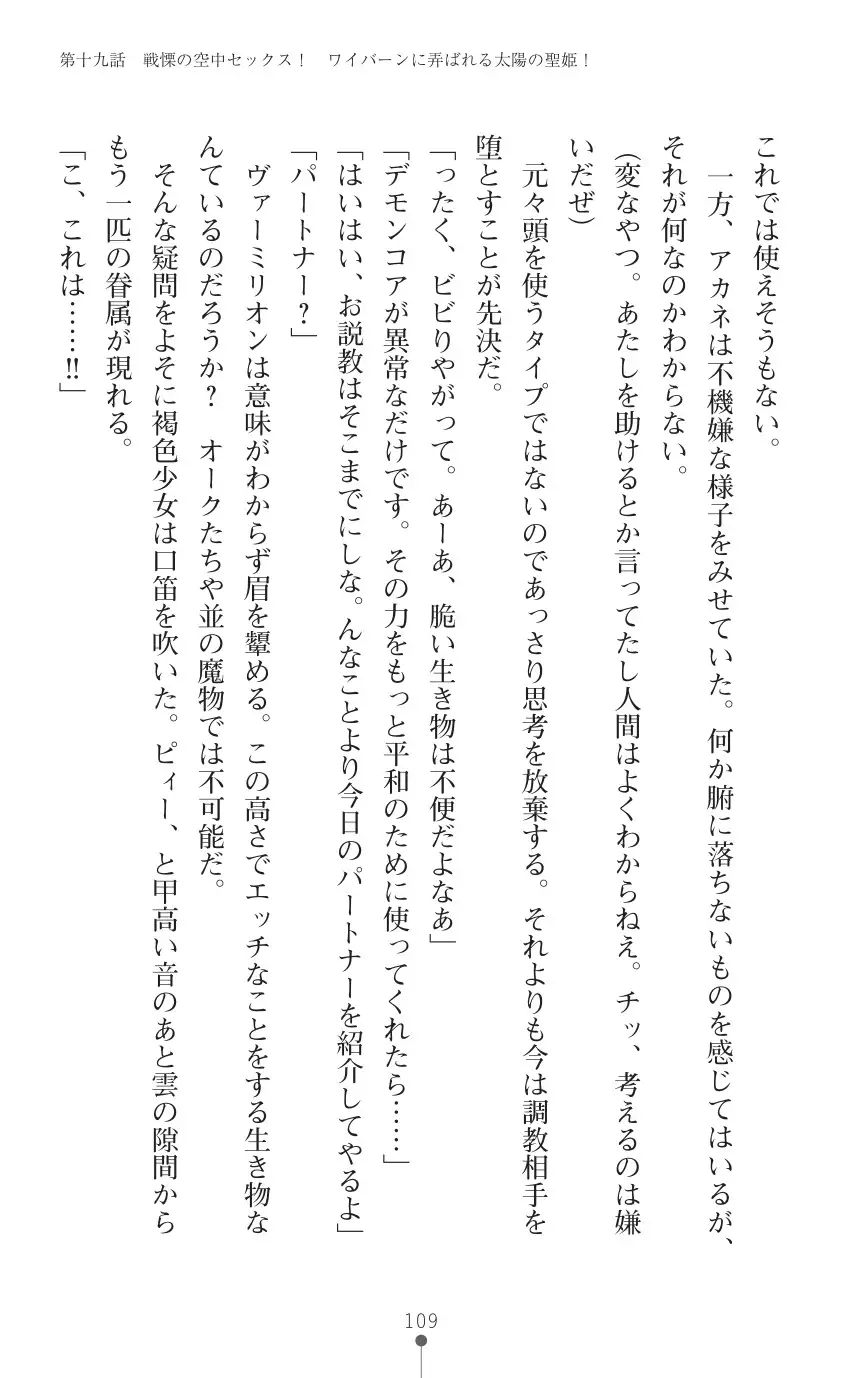 第十九話　戦慄の空中セックス！　ワイバーンに弄ばれる太陽の聖姫！
これでは使えそうもない。
　一方、アカネは不機嫌な様子をみせていた。何か腑に落ちないものを感じてはいるが、
それが何なのかわからない。
（変なやつ。あたしを助けるとか言ってたし人間はよくわからねえ。チッ、考えるのは嫌
いだぜ）
　元々頭を使うタイプではないのであっさり思考を放棄する。それよりも今は調教相手を
堕とすことが先決だ。
「ったく、ビビりやがって。あーあ、脆い生き物は不便だよなあ」
「デモンコアが異常なだけです。その力をもっと平和のために使ってくれたら……」
「はいはい、お説教はそこまでにしな。んなことより今日のパートナーを紹介してやるよ」
「パートナー？」
　ヴァーミリオンは意味がわからず眉を顰める。この高さでエッチなことをする生き物な
んているのだろうか？　オークたちや並の魔物では不可能だ。
　そんな疑問をよそに褐色少女は口笛を吹いた。ピィー、と甲高い音のあと雲の隙間から
もう一匹の眷属が現れる。
「こ、これは……!!」
109